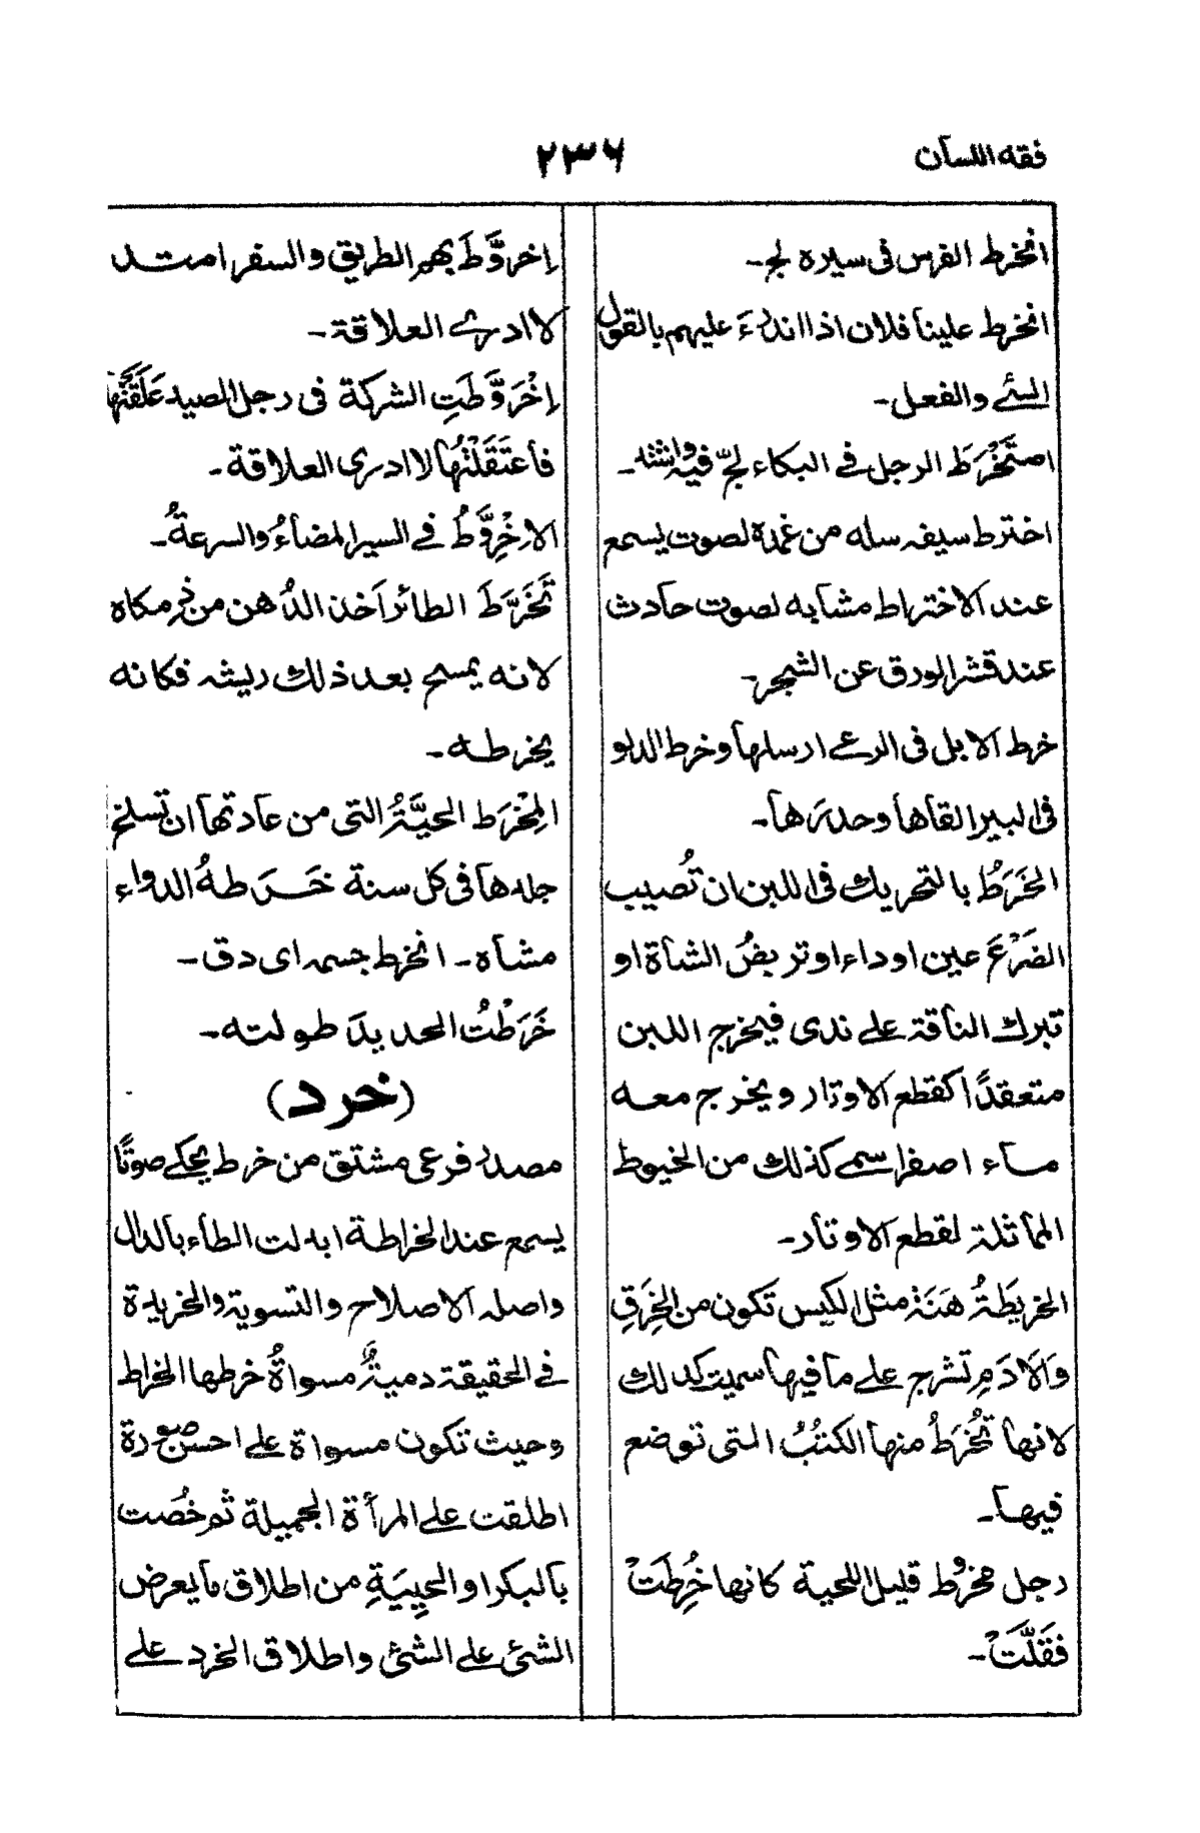 فقه اللسان
٢٣٦
انخرط الفرس فى سيره لج۔
انخرط علينا فلان اذا اندرءَ عليهم بالقول
السئے والفعل۔
استَخْرَطَ الرجل فے البكاء لجّ فيه واشتد۔
اخترط سيفه سله من غمده لصوت يسمع
عند الاختراط مشابه لصوت حادث
عند قشر الورق عن الشجر۔
خرط الابل فى الرعے ارسلها وخرط الدلو
فى البير القاها وحدرها۔
الخَرَطُ بالتحريك فى اللبن ان تُصيب
الضَرْعَ عين او داء او تربضُ الشاة او
تبرك الناقة علے ندى فيخرج اللبن
متعقدًا كقطع الاوتار ويخرج معه
ماء اصفر سمى كذلك من الخيوط
المأثلة لقطع الاوتار۔
الخريطَةُ هَنَة مثل الكيس تكون من الخِرَقِ
وَالاَدَمِ تشرج علے ما فيها سميت كذلك
لانها تُخْرَطُ منها الكُتُبُ التى توضع
فيها۔
رجل مخروط قليل اللحية كانها خُرِطَتْ
فقَلَّتْ۔
اِخروَّطَ بهم الطريق والسفر امتد
لا ادرے العلاقة۔
اِخْرَوَّطَتِ الشركة فى رجل الصيد عَلَقَتْها
فاعتَقَلَتْها لا ادرى العلاقة۔
الاِخْرِوَّطُ فے السير المضاءُ والسرعةُ۔
تَخَرَّطَ الطائر اَخذ الدُهن من زمكاه
لانه يمسح بعد ذلك ريشه فكانه
يخرطه۔
المِخْرَط الحيَّةُ التى من عادتها ان تسلخ
جلدها فى كل سنة خَرَطهُ الدواء
مشاه۔ انخرط جسمه اى دق۔
خَرَطْتُ الحديدَ طولته۔
(خرد)
مصدر فرعى مشتق من خرط يحكے صوتًا
يسمع عند الخراطة ابدلت الطاء بالدال
واصله الاصلاح والتسوية والخريدة
فے الحقيقة دميةٌ مسواةٌ خرطها الخراط
وحيث تكون مسواة علے احسن صورة
اطلقت علے المرأة الجميلة ثم خُصت
بالبكر او الحيِيَةِ من اطلاق ما يعرض
الشئ علے الشئ واطلاق الخرد علے